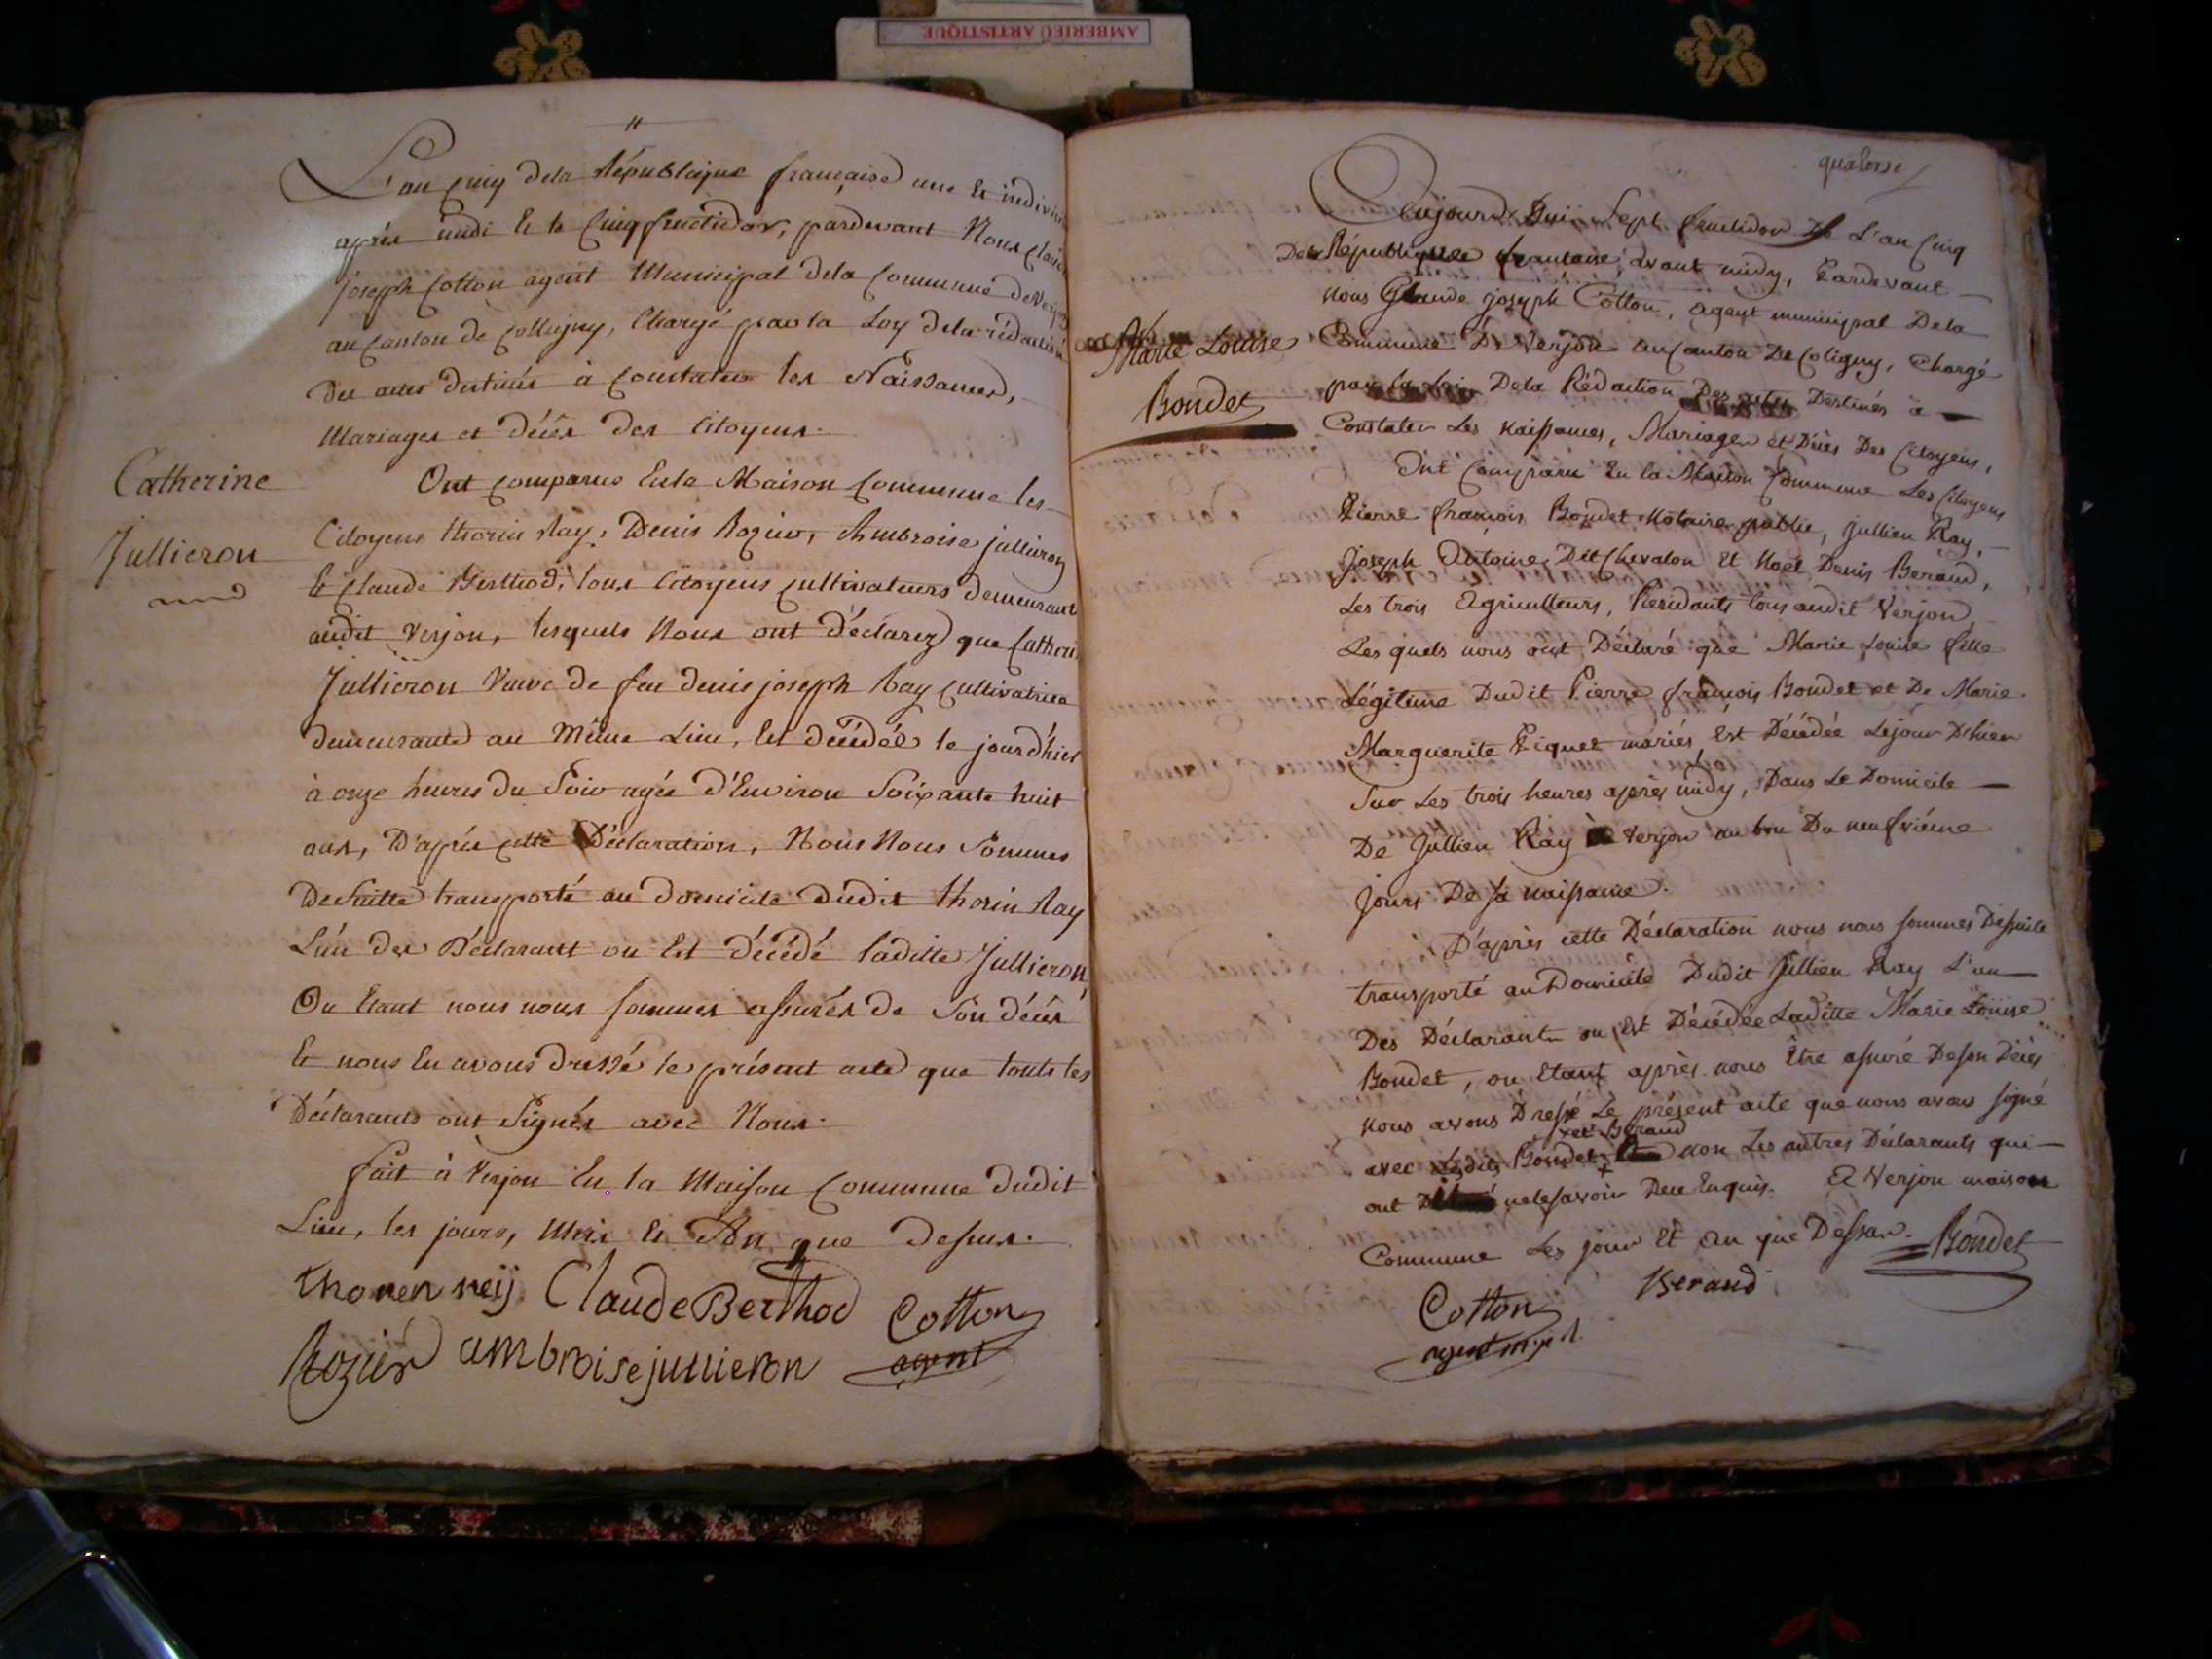 AMBERIEU ARTISTIQUE
L'an cinq dela République française une et indivisi
après midi et le cinq fructidor, pardevant Nous Claude
joseph Cotton agent Municipal dela Commune de Verjon
au Canton de Colligny, Chargé par la Loy dela rédaction
des actes destinés à Constater les Naissances,
Mariages et décès des Citoyens.
Catherine
Jullieron
Ont comparus En la Maison Commune les
Citoyens thorin Ray, Denis Rozier, Ambroise jullieron
Et Claude Berthod, tous Citoyens cultivateurs demeurants
audit Verjon, lesquels Nous ont déclarez que Catheri
Jullieron Veuve de feu denis joseph Ray Cultivatrice
demeurante au Même Lieu, Est décédée le jourd'hier
à onze heures du Soir agée d'Environ Soixante huit
ans, D'après cette Déclaration, Nous Nous Sommes
De Suitte transporté au domicile dudit thorin Ray
L'un des Déclarants ou Est décédé laditte Jullieron
Ou Etant nous nous sommes assurés de Son décès
Et nous En avons dressé le présent acte que touts les
Déclarants ont Signés avec Nous.
fait à Verjon En la Maison Commune dudit
Lieu, les jours, Mois Et An que dessus.
thoren reij Claude Berthod Cotton
Rozier ambroise jullieron agent
quatorze
Aujourd'huii Sept fructidor De L'an Cinq
Dela République francaise, avant midy, Pardevant
nous Glaude joseph Cotton, agent municipal Dela
Commune De Verjon au Canton De Coligny, Chargé
par la Loi Dela Rédaction Des actes Destinés à
Constater Les naissances, Mariages et Décès Des Citoyens,
Marie Louise
Bondet
Ont Comparu En la Maison Commune Les Citoyens
Pierre francois Bondet Notaire public, jullien Ray,
joseph Antoine Dit Chevalon Et Noel Denis Beraud,
Les trois Agriculteurs, Residants tous audit Verjon
Les quels nous ont Déclaré que Marie Louise fille
Légitime Dudit Pierre francois Bondet et De Marie
Marguerite Piquet mariés, Est Décédée Lejour Dhier
Sur Les trois heures après midy, Dans Le Domicile
De Jullien Ray à Verjon au bou Du neufviéme
jours De sa naissance.
D'après cette Déclaration nous nous sommes Dessuite
transporté au Domicile Dudit Jullien Ray L'un
Des Déclarants ou Est Décédée Laditte Marie Louise
Bondet, ou Etant après nous Etre assuré De son Décès
nous avons Dressé Le présent acte que nous avons signé
+ et Beraud
avec Lesdits Bondet + non Les autres Déclarants qui
ont nele savoir Dece Enquis. A Verjon maison
Commune Les jour Et an que Dessus. Bondet
Cotton Beraud
agent mpal